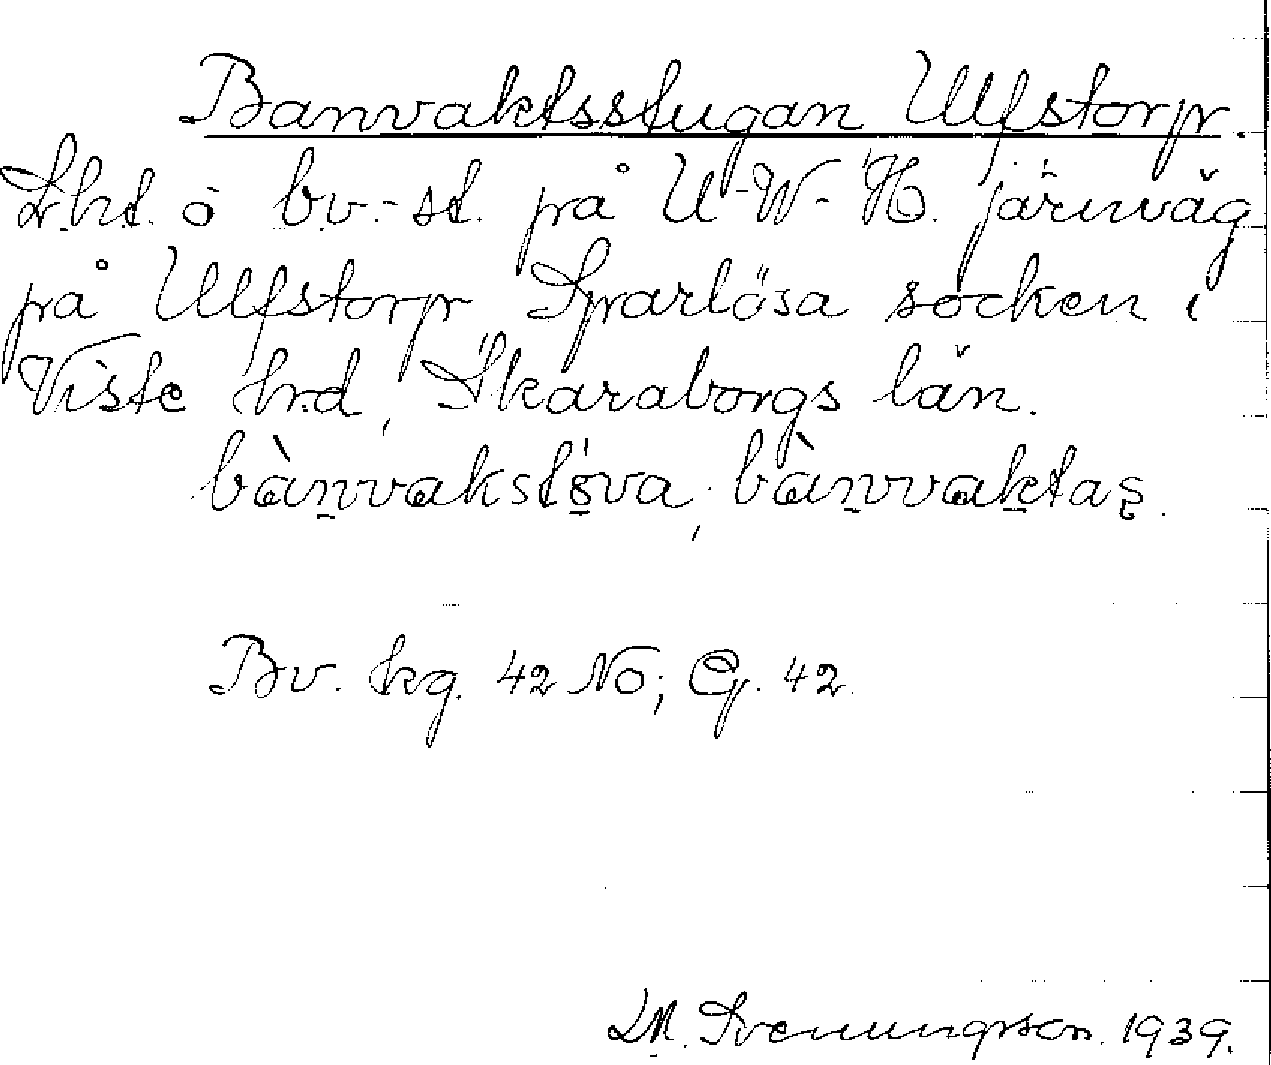 Banvaktsstugan Ulfstorp.
Lht. o bv.-st. på U-W-H. järnväg
på Ulfstorp Sparlösa socken i
Viste hrd, Skaraborgs län.
bànvakstöva, bànvaktas.
Bv. kg. 42 NO; G. 42.
Svenungsson. 1939.